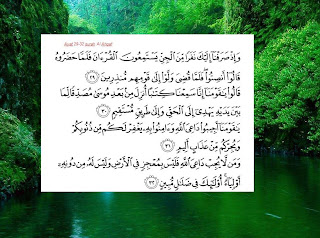 Ayat 29-32 surah Al-Ahqaf
وَإِذْ صَرَفْنَآ إِلَيْكَ نَفَرًا مِّنَ ٱلْجِنِّ يَسْتَمِعُونَ ٱلْقُرْءَانَ فَلَمَّا حَضَرُوهُ
قَالُوٓا۟ أَنصِتُوا۟ ۖ فَلَمَّا قُضِىَ وَلَّوْا۟ إِلَىٰ قَوْمِهِم مُّنذِرِينَ ٢٩
قَالُوا۟ يَٰقَوْمَنَآ إِنَّا سَمِعْنَا كِتَٰبًا أُنزِلَ مِنۢ بَعْدِ مُوسَىٰ مُصَدِّقًا لِّمَا
بَيْنَ يَدَيْهِ يَهْدِىٓ إِلَى ٱلْحَقِّ وَإِلَىٰ طَرِيقٍ مُّسْتَقِيمٍ ٣٠
يَٰقَوْمَنَآ أَجِيبُوا۟ دَاعِىَ ٱللَّهِ وَءَامِنُوا۟ بِهِۦ يَغْفِرْ لَكُم مِّن ذُنُوبِكُمْ
وَيُجِرْكُم مِّنْ عَذَابٍ أَلِيمٍ ٣١
وَمَن لَّا يُجِبْ دَاعِىَ ٱللَّهِ فَلَيْسَ بِمُعْجِزٍ فِى ٱلْأَرْضِ وَلَيْسَ لَهُۥ مِن دُونِهِۦٓ
أَوْلِيَآءُ ۚ أُو۟لَٰٓئِكَ فِى ضَلَٰلٍ مُّبِينٍ ٣٢